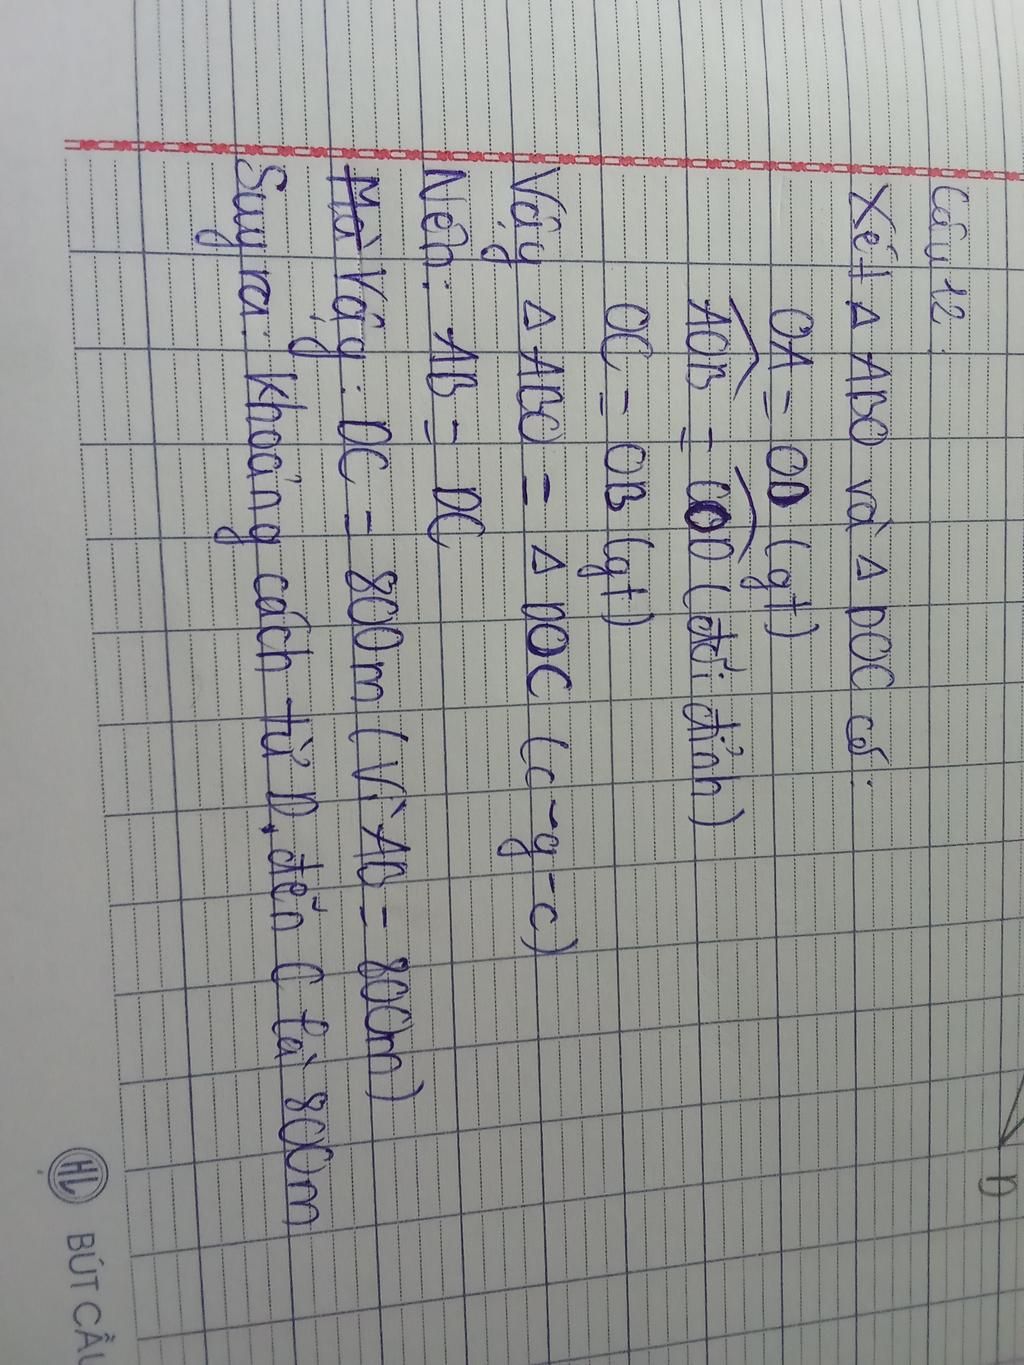 Câu 12.
Xét △ ABO và △ DOC có:
OA = OD (gt)
AOB = COD (đối đỉnh)
OC = OB (gt)
Vậy △ ABO = △ DOC (c-g-c)
Nên: AB = DC
Mà Vậy: DC = 800m (Vì AB = 800m)
Suy ra: khoảng cách từ D đến C là 800m
D
HL BÚT CẦU